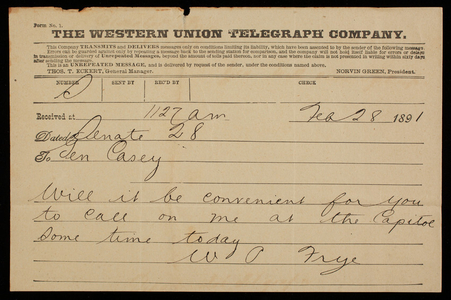 Form No. 1.
THE WESTERN UNION TELEGRAPH COMPANY.
This Company TRANSMITS and DELIVERS messages only on conditions limiting its liability, which have been assented to by the sender of the following message.
Errors can be guarded against only by repeating a message back to the sending station for comparison, and the company will not hold itself liable for errors or delays
in transmission or delivery of Unrepeated Messages, beyond the amount of tolls paid thereon, nor in any case where the claim is not presented in writing within sixty days
after sending the message.
This is an UNREPEATED MESSAGE, and is delivered by request of the sender, under the conditions named above.
THOS. T. ECKERT, General Manager. NORVIN GREEN, President.
NUMBER SENT BY REC'D BY CHECK
Received at 1127 am Feb 28 1891
Dated Senate 28
To Gen Casey
Will it be convenient for you
to call on me at the Capitol
some time today
W P Frye